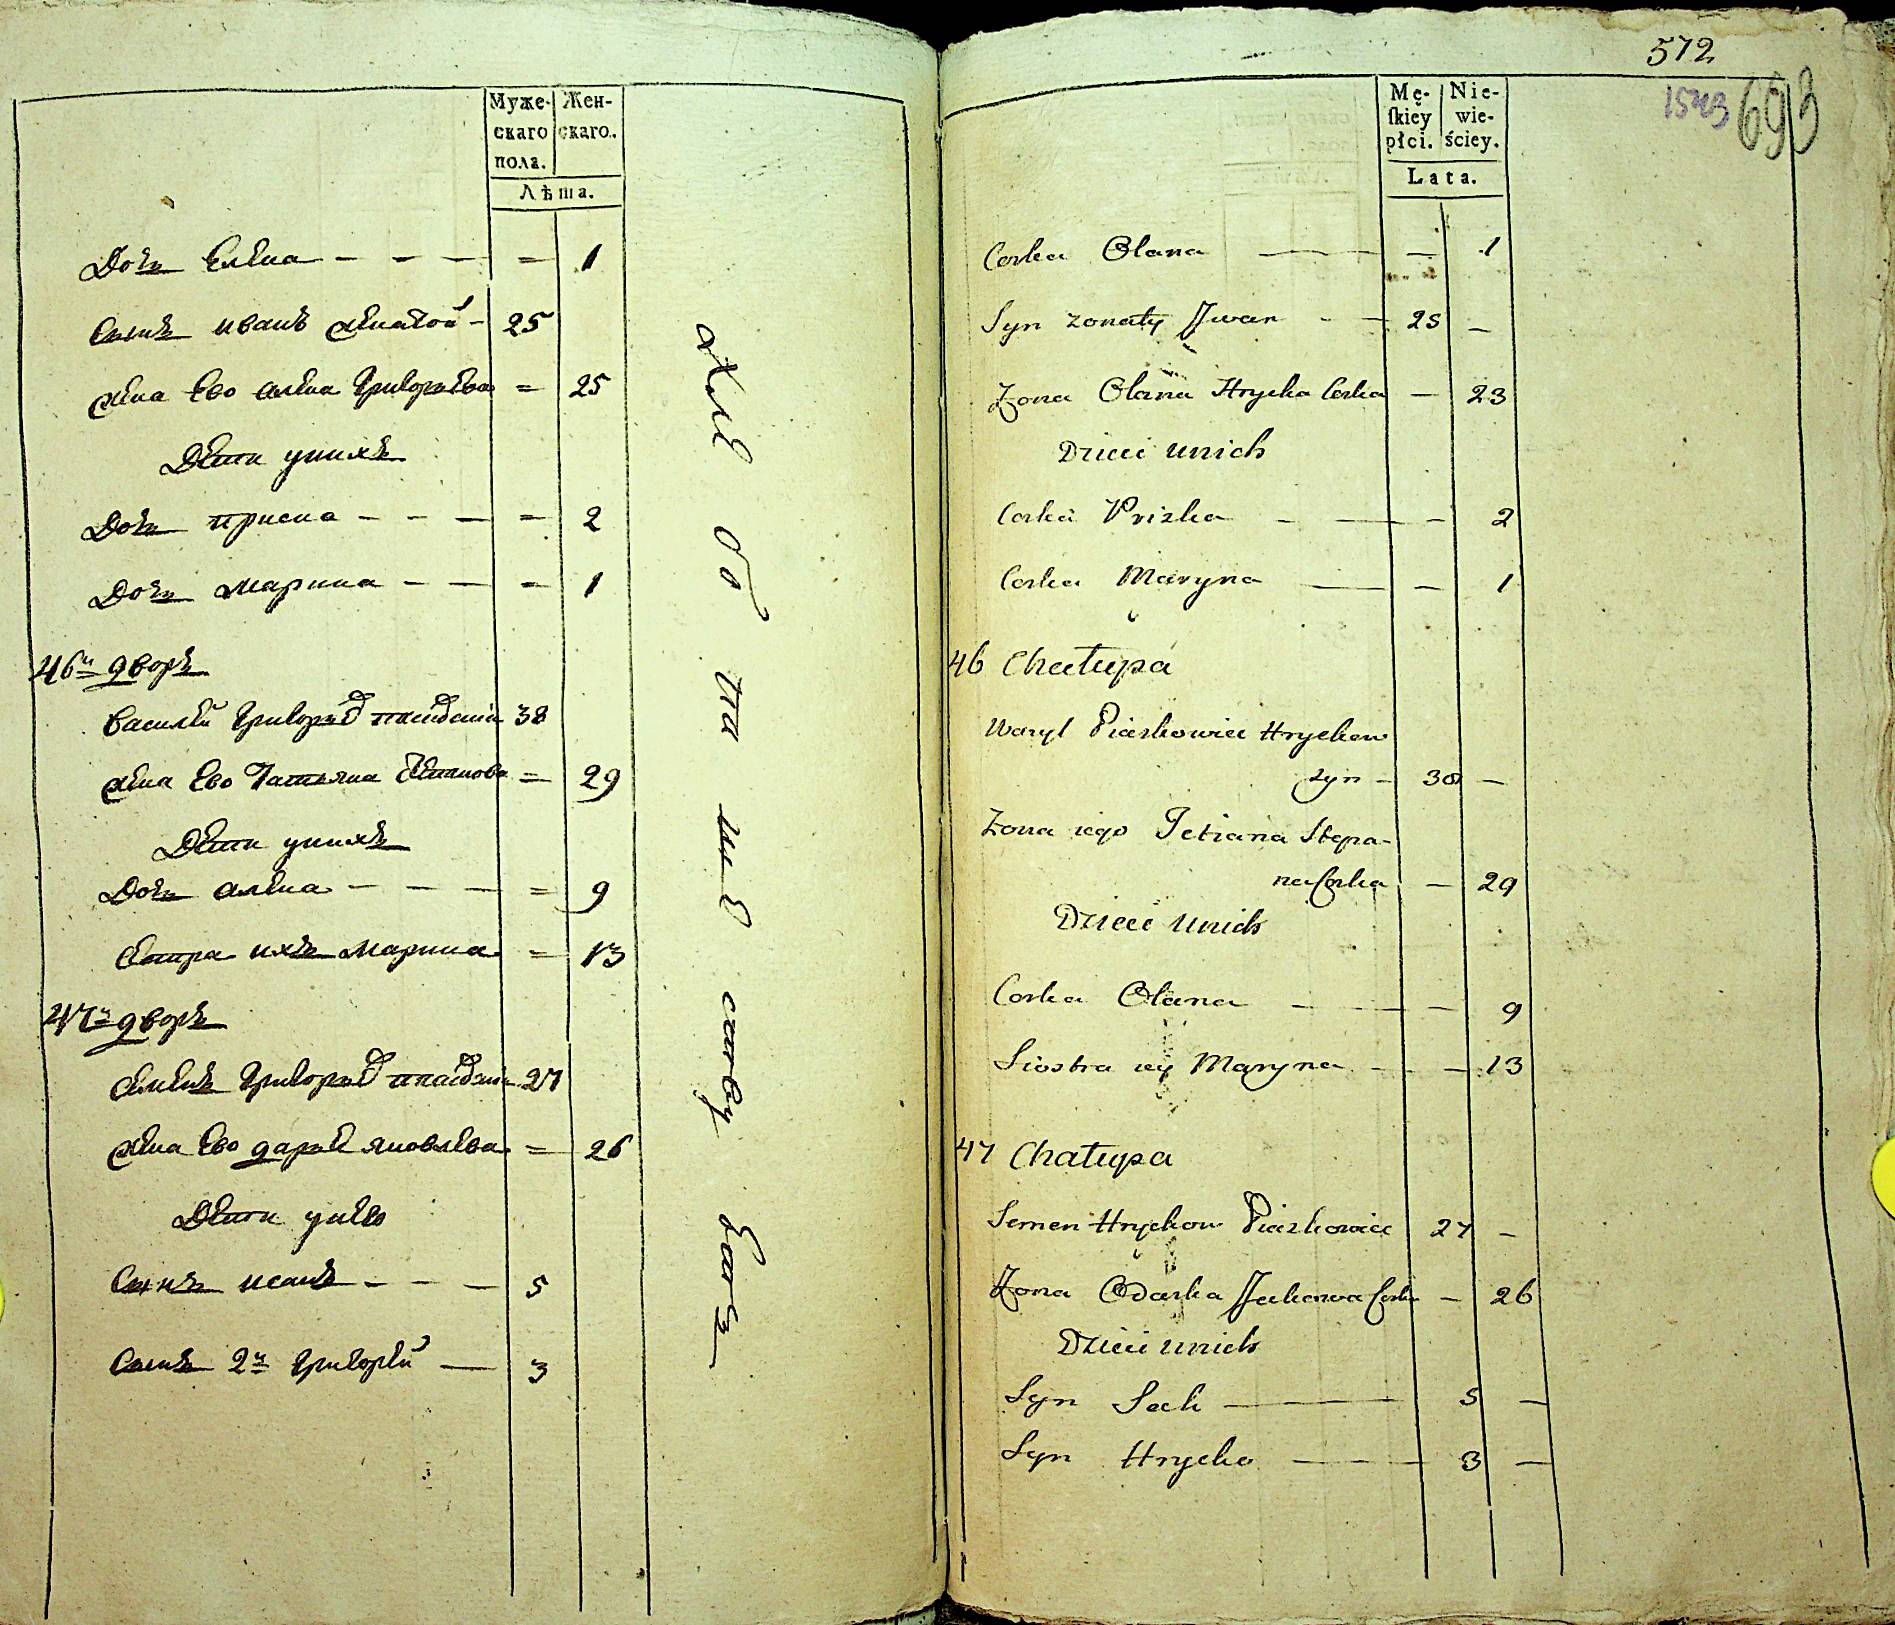 Муже-
скаго
пола.
Жен-
скаго.
Лѣта.
Дочь Елена - - - = 1
Сынъ иванъ женатой - 25
жена Ево алена григорьева = 25
Дети унихъ
Дочь приска - - - = 2
Дочь марина - - = 1
46й дворъ
Василей григорьев 38
жена Ево Татьяна степанова = 29
Дети унихъ
Дочь алена - - - = 9
сестра ихъ марина = 13
47й дворъ
семенъ григорьев 27
жена Ево дарья яковлева = 26
Дети унихъ
Сынъ исакъ - - - 5
Сынъ 2й григорей - 3
572
1543
693
Mę-
skiey
płci.
Nie-
wie-
ściey.
Lata.
Corka Olana — — 1
Syn zonaty Jwan - - 25 -
Zona Olana Hrycka Corka - 23
Dzieci unich
Corka Priska - — - 2
Corka Maryna — - 1
46 Chałupa
Wasyl Piaskowiec Hryckow
syn - 38 -
Zona iego Tetiana Stepa-
na Corka - 29
Dzieci unich
Corka Olana - — - 9
Siostra iey Maryna - - 13
47 Chałupa
Semen Hryckow Piaskowiec 27 -
Zona Odarka Jackowa Corka - 26
Dzieci unich
Syn Sack — 5 —
Syn Hrycko — 3 —